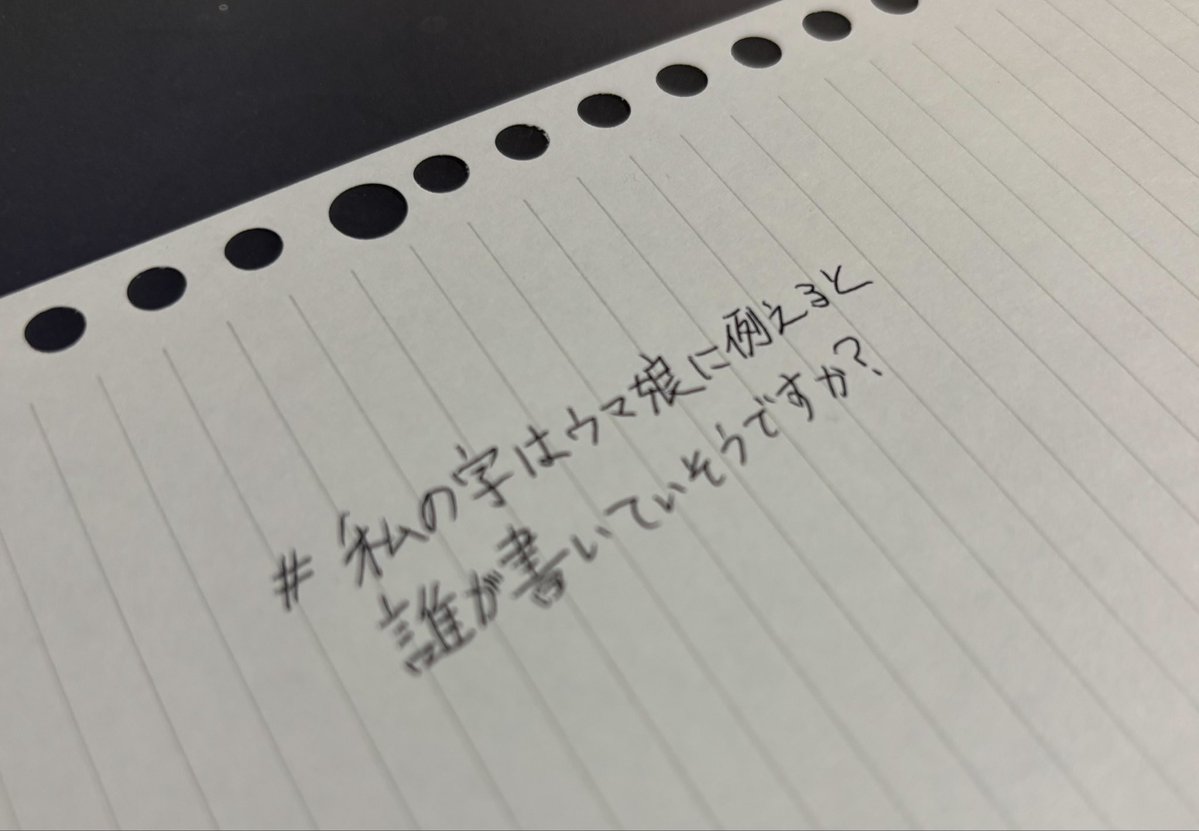 #私の字はウマ娘に例えると
誰が書いていそうですか?